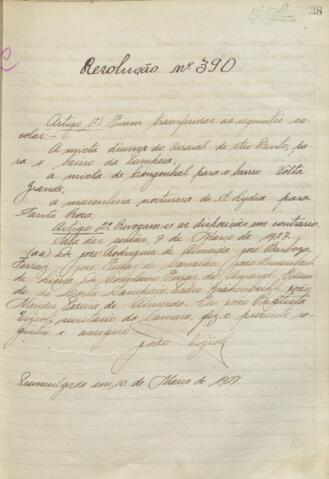 38
Resolução nº 390
Artigo 1º) Ficam transferidas as seguintes es-
colas:-
A mixta diurna do arraial de São Bento, pa-
ra o bairro da Pompeia;
a mixta de Congonhal para o bairro Volta
Grande;
a masculina nocturna de Sta Lydia para
Santa Rosa.
Artigo 2º. Revogam-se as disposições em contrario.
Sala das sessões, 7 de Março de 1927.
(aa) Dr José Rodrigues de Almeida, José Barbosa
Ferraz, José Ferraz de Camargo,
de Lima, Dr Coriolano Ferraz do Amaral,
da Costa Sampaio, Pedro João
Mendes Pereira de Almeida. Eu, João
secretario da Camara, fiz o presente re-
gistro e assigno.
João
Promulgada em, 10 de Março de 1927.